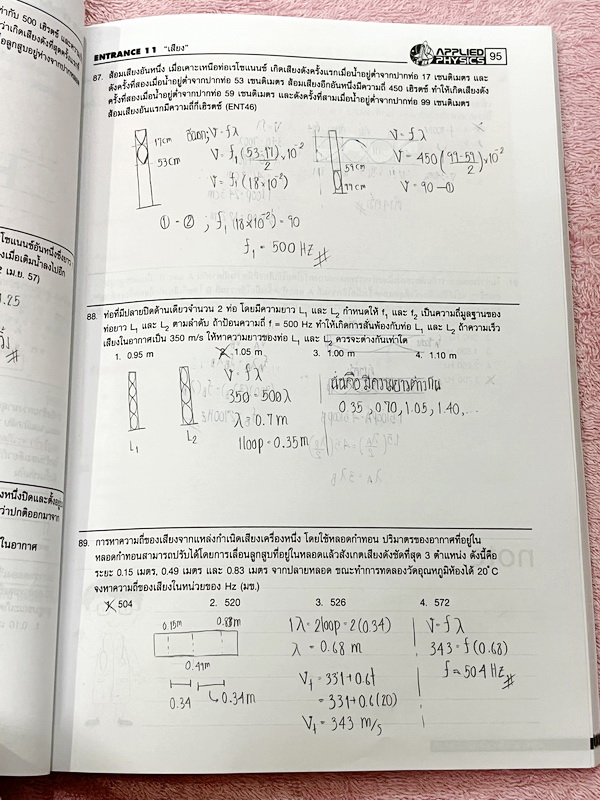 ENTRANCE 11 "เสียง"
APPLIED PHYSICS 95
87. ส้อมเสียงอันหนึ่ง เมื่อเคาะเหนือท่อเรโซแนนซ์ เกิดเสียงดังครั้งแรกเมื่อน้ำอยู่ต่ำจากปากท่อ 17 เซนติเมตร และ
ดังครั้งที่สองเมื่อน้ำอยู่ต่ำจากปากท่อ 53 เซนติเมตร ส้อมเสียงอีกอันหนึ่งมีความถี่ 450 เฮิรตซ์ ทำให้เกิดเสียงดัง
ครั้งที่สองเมื่อน้ำอยู่ต่ำจากปากท่อ 59 เซนติเมตร และดังครั้งที่สามเมื่อน้ำอยู่ต่ำจากปากท่อ 99 เซนติเมตร
ส้อมเสียงอันแรกมีความถี่กี่เฮิรตซ์ (ENT46)
17cm
53cm
V = fλ
V = f₁(53-17)/2 ×10⁻²
V = f₁(18×10⁻²)
① - ② , f₁(18×10⁻²) = 90
f₁ = 500 Hz #
59cm
99cm
V = fλ
V = 450(99-59)/2 ×10⁻²
V = 90 - ①
88. ท่อที่มีปลายปิดด้านเดียวจำนวน 2 ท่อ โดยมีความยาว L₁ และ L₂ กำหนดให้ f₁ และ f₂ เป็นความถี่มูลฐานของ
ท่อยาว L₁ และ L₂ ตามลำดับ ถ้าป้อนความถี่ f = 500 Hz ทำให้เกิดการสั่นพ้องกับท่อ L₁ และ L₂ ถ้าความเร็ว
เสียงในอากาศเป็น 350 m/s ให้หาความยาวของท่อ L₁ และ L₂ ควรจะต่างกันเท่าใด
1. 0.95 m 2. 1.05 m 3. 1.00 m 4. 1.10 m
L₁
L₂
V = fλ
350 = 500λ
λ = 0.7 m
1loop = 0.35 m
นั่นคือ มีความยาวต่างกัน
0.35, 0.70, 1.05, 1.40, ...
89. การหาความถี่ของเสียงจากแหล่งกำเนิดเสียงเครื่องหนึ่ง โดยใช้หลอดกำทอน ปริมาตรของอากาศที่อยู่ใน
หลอดกำทอนสามารถปรับได้โดยการเลื่อนลูกสูบที่อยู่ในหลอดแล้วสังเกตเสียงดังชัดที่สุด 3 ตำแหน่ง ดังนี้คือ
ระยะ 0.15 เมตร, 0.49 เมตร และ 0.83 เมตร จากปลายหลอด ขณะทำการทดลองวัดอุณหภูมิห้องได้ 20°C
จงหาความถี่ของเสียงในหน่วยของ Hz (มช.)
1. 504 2. 520 3. 526 4. 572
0.15m
0.83m
0.49m
0.34
0.34m
1λ = 2loop = 2(0.34)
λ = 0.68 m
Vt = 331+0.6t
= 331+0.6(20)
Vt = 343 m/s
V = fλ
343 = f(0.68)
f = 504 Hz #